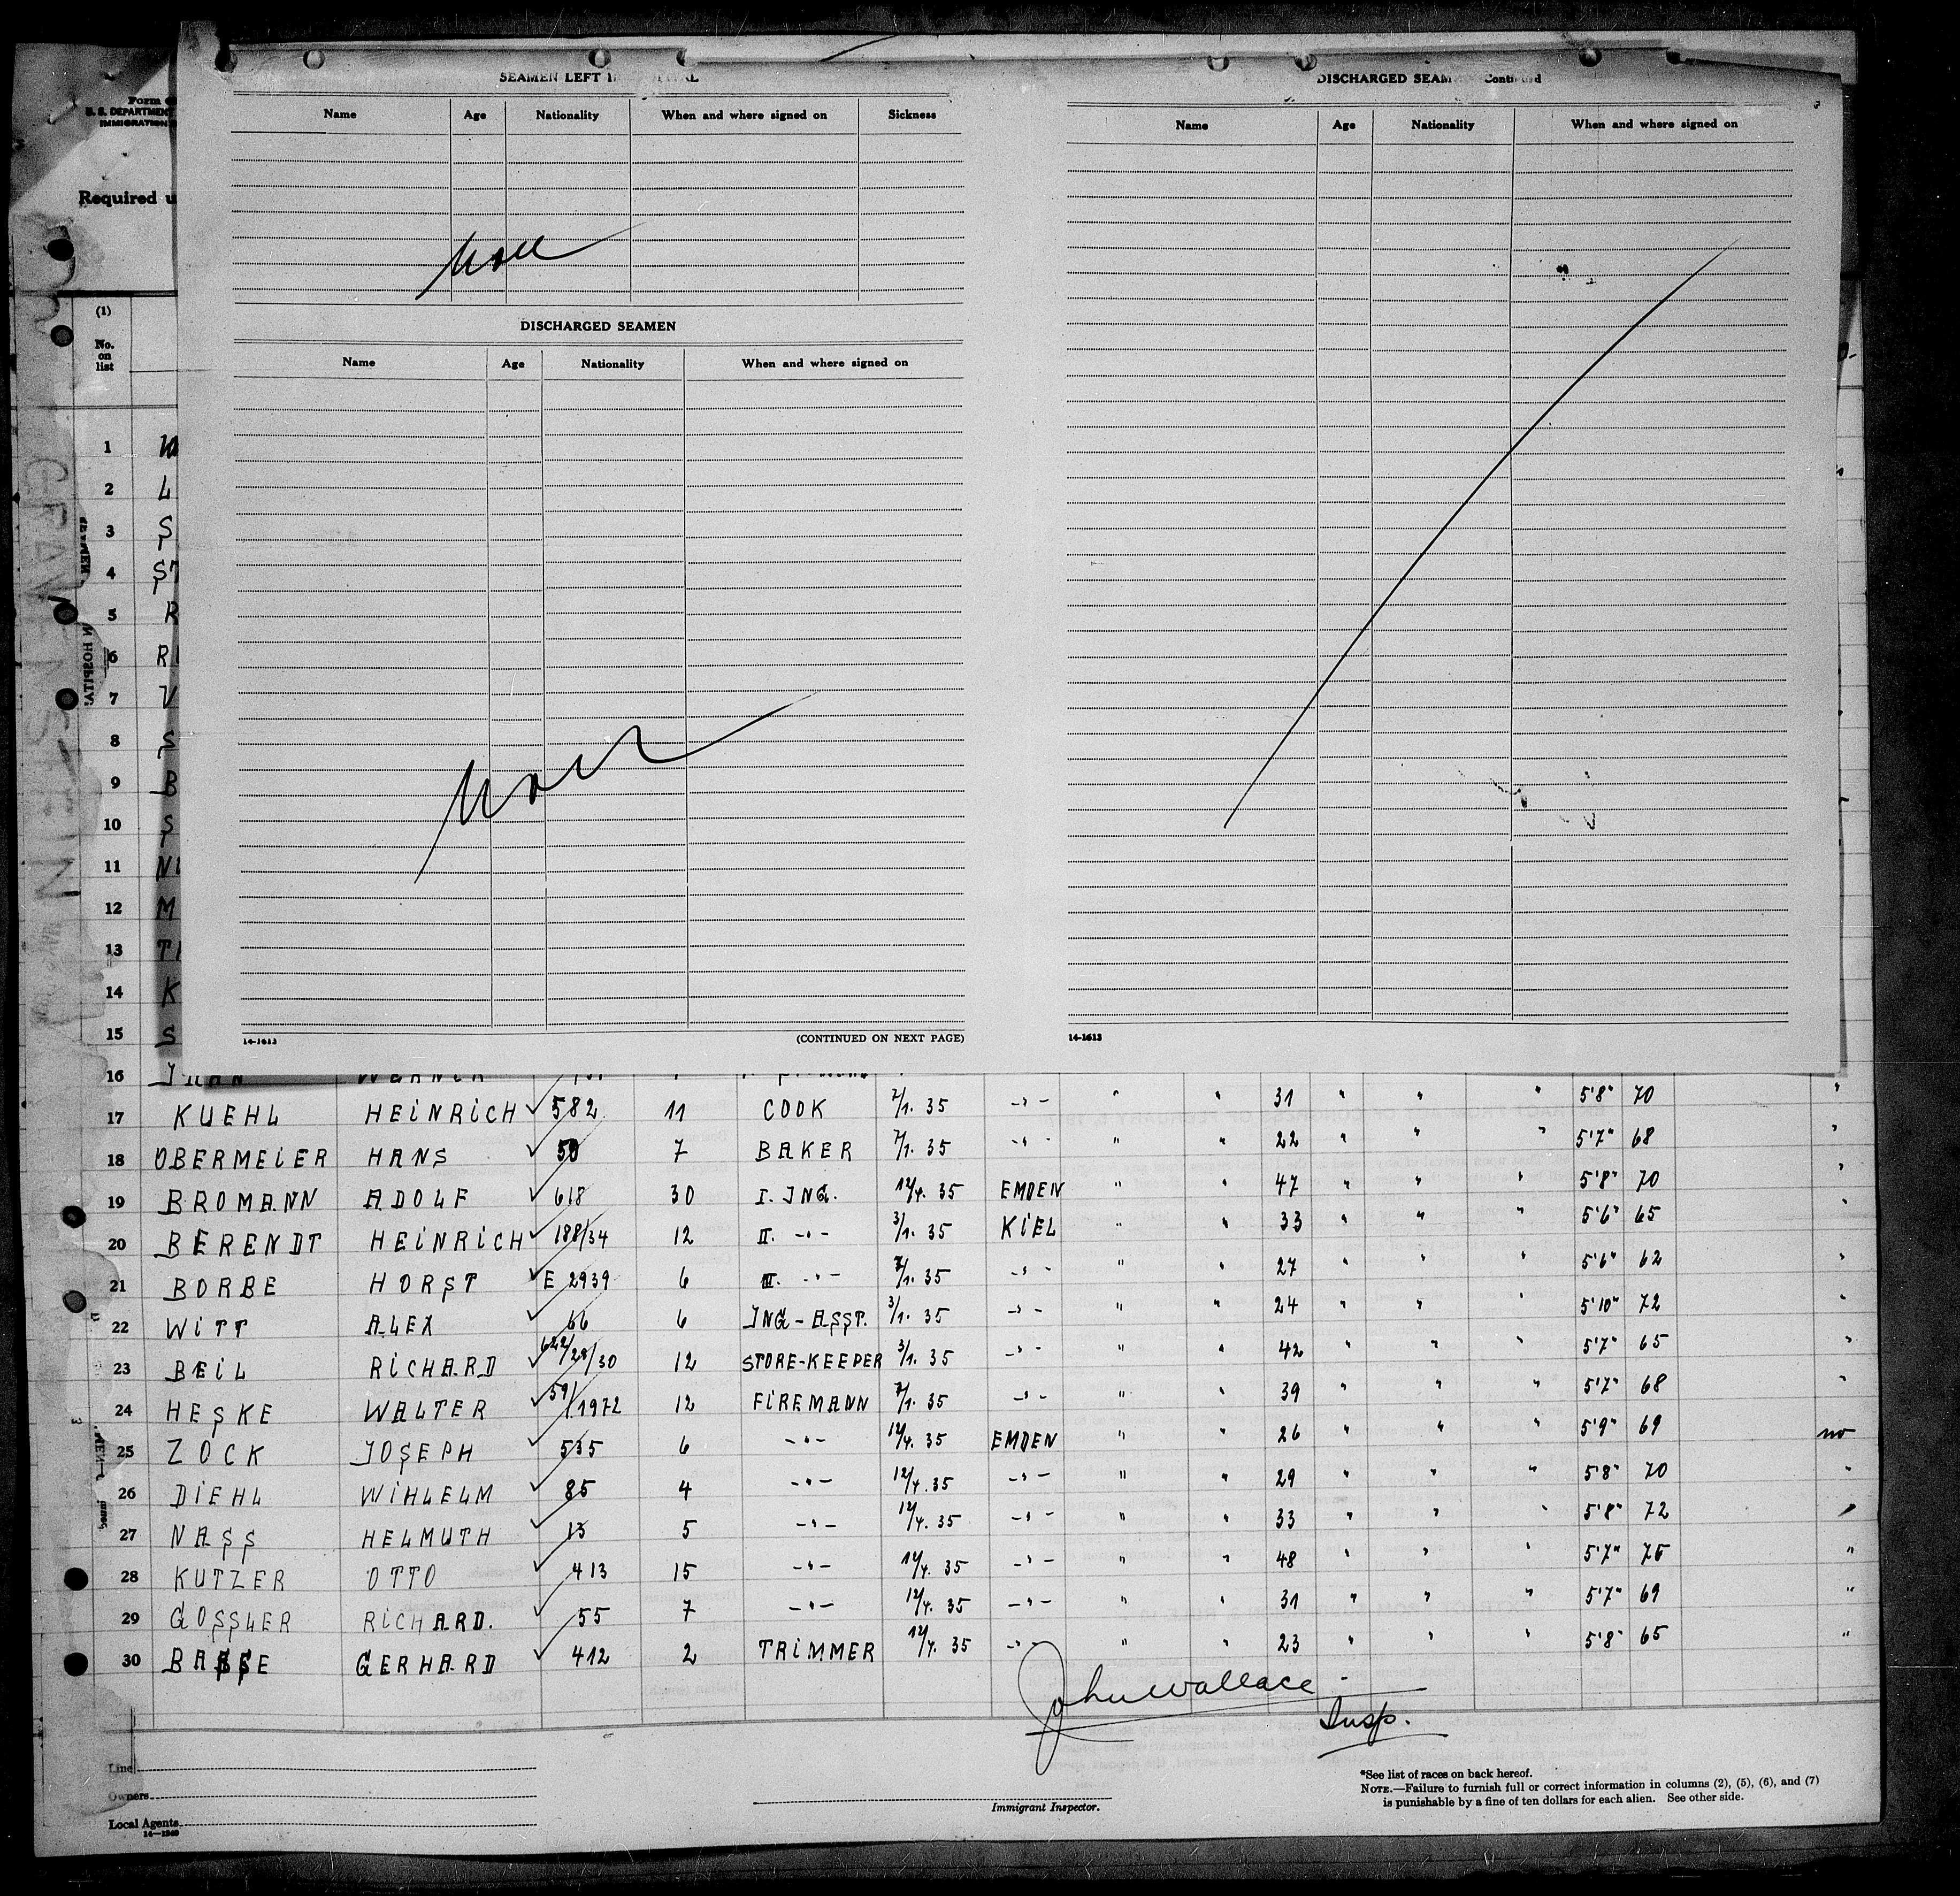 SEAMEN LEFT
Name Age Nationality When and where signed on Sickness
None
DISCHARGED SEAMEN
Name Age Nationality When and where signed on
None
14-1613 (CONTINUED ON NEXT PAGE)
DISCHARGED SEAM Continued
Name Age Nationality When and where signed on
14-1613
Form
U. S. DEPARTMENT
IMMIGRATION
Required u
(1)
No.
on
list
1
2 L
3 S
4 ST
5 R
6 R
7 V
8 S
9 B
10 S
11 N
12 M
13 T
14 K
15 S
16
17 KUEHL HEiNRiCH ✓ 582 11 COOK 2/1. 35 -"- " " 31 " " " 5'8" 70 "
18 OBERMEiER HANS ✓ 50 7 BAKER 7/1. 35 -"- " " 22 " " " 5'7" 68 "
19 BROMANN ADOLF ✓ 618 30 I. JNG. 12/4. 35 EMDEN " " 47 " " " 5'8" 70 "
20 BERENDT HEiNRiCH ✓ 188/34 12 II. -"- 3/1. 35 KiEL " " 33 " " " 5'6" 65 "
21 BORBE HORST ✓ E 2939 6 III. -"- 3/1. 35 -"- " " 27 " " " 5'6" 62 "
22 WiTT ALEX ✓ 66 6 JNG-ASST. 3/1. 35 -"- " " 24 " " " 5'10" 72 "
23 BEiL RiCHARD ✓ 622/28/30 12 STORE-KEEPER 3/1. 35 -"- " " 42 " " " 5'7" 65 "
24 HESKE WALTER ✓ 59/1972 12 FiREMANN 7/1. 35 -"- " " 39 " " " 5'7" 68 "
25 ZOCK JOSEPH ✓ 535 6 -"- 12/4. 35 EMDEN " " 26 " " " 5'9" 69 no
26 DiEHL WiHLELM ✓ 85 4 -"- 12/4. 35 -"- " " 29 " " " 5'8" 70 "
27 NASS HELMUTH ✓ 13 5 -"- 12/4. 35 -"- " " 33 " " " 5'8" 72 "
28 KUTZER OTTO ✓ 413 15 -"- 12/4. 35 -"- " " 48 " " " 5'7" 75 "
29 GOSSLER RiCHARD. ✓ 55 7 -"- 12/4. 35 -"- " " 31 " " " 5'7" 69 "
30 BASSE GERHARD ✓ 412 2 TRiMMER 12/4. 35 -"- " " 23 " " " 5'8" 65 "
John Wallace
Insp.
Line
Owners
Local Agents
14-1240
Immigrant Inspector.
*See list of races on back hereof.
NOTE.—Failure to furnish full or correct information in columns (2), (5), (6), and (7)
is punishable by a fine of ten dollars for each alien. See other side.